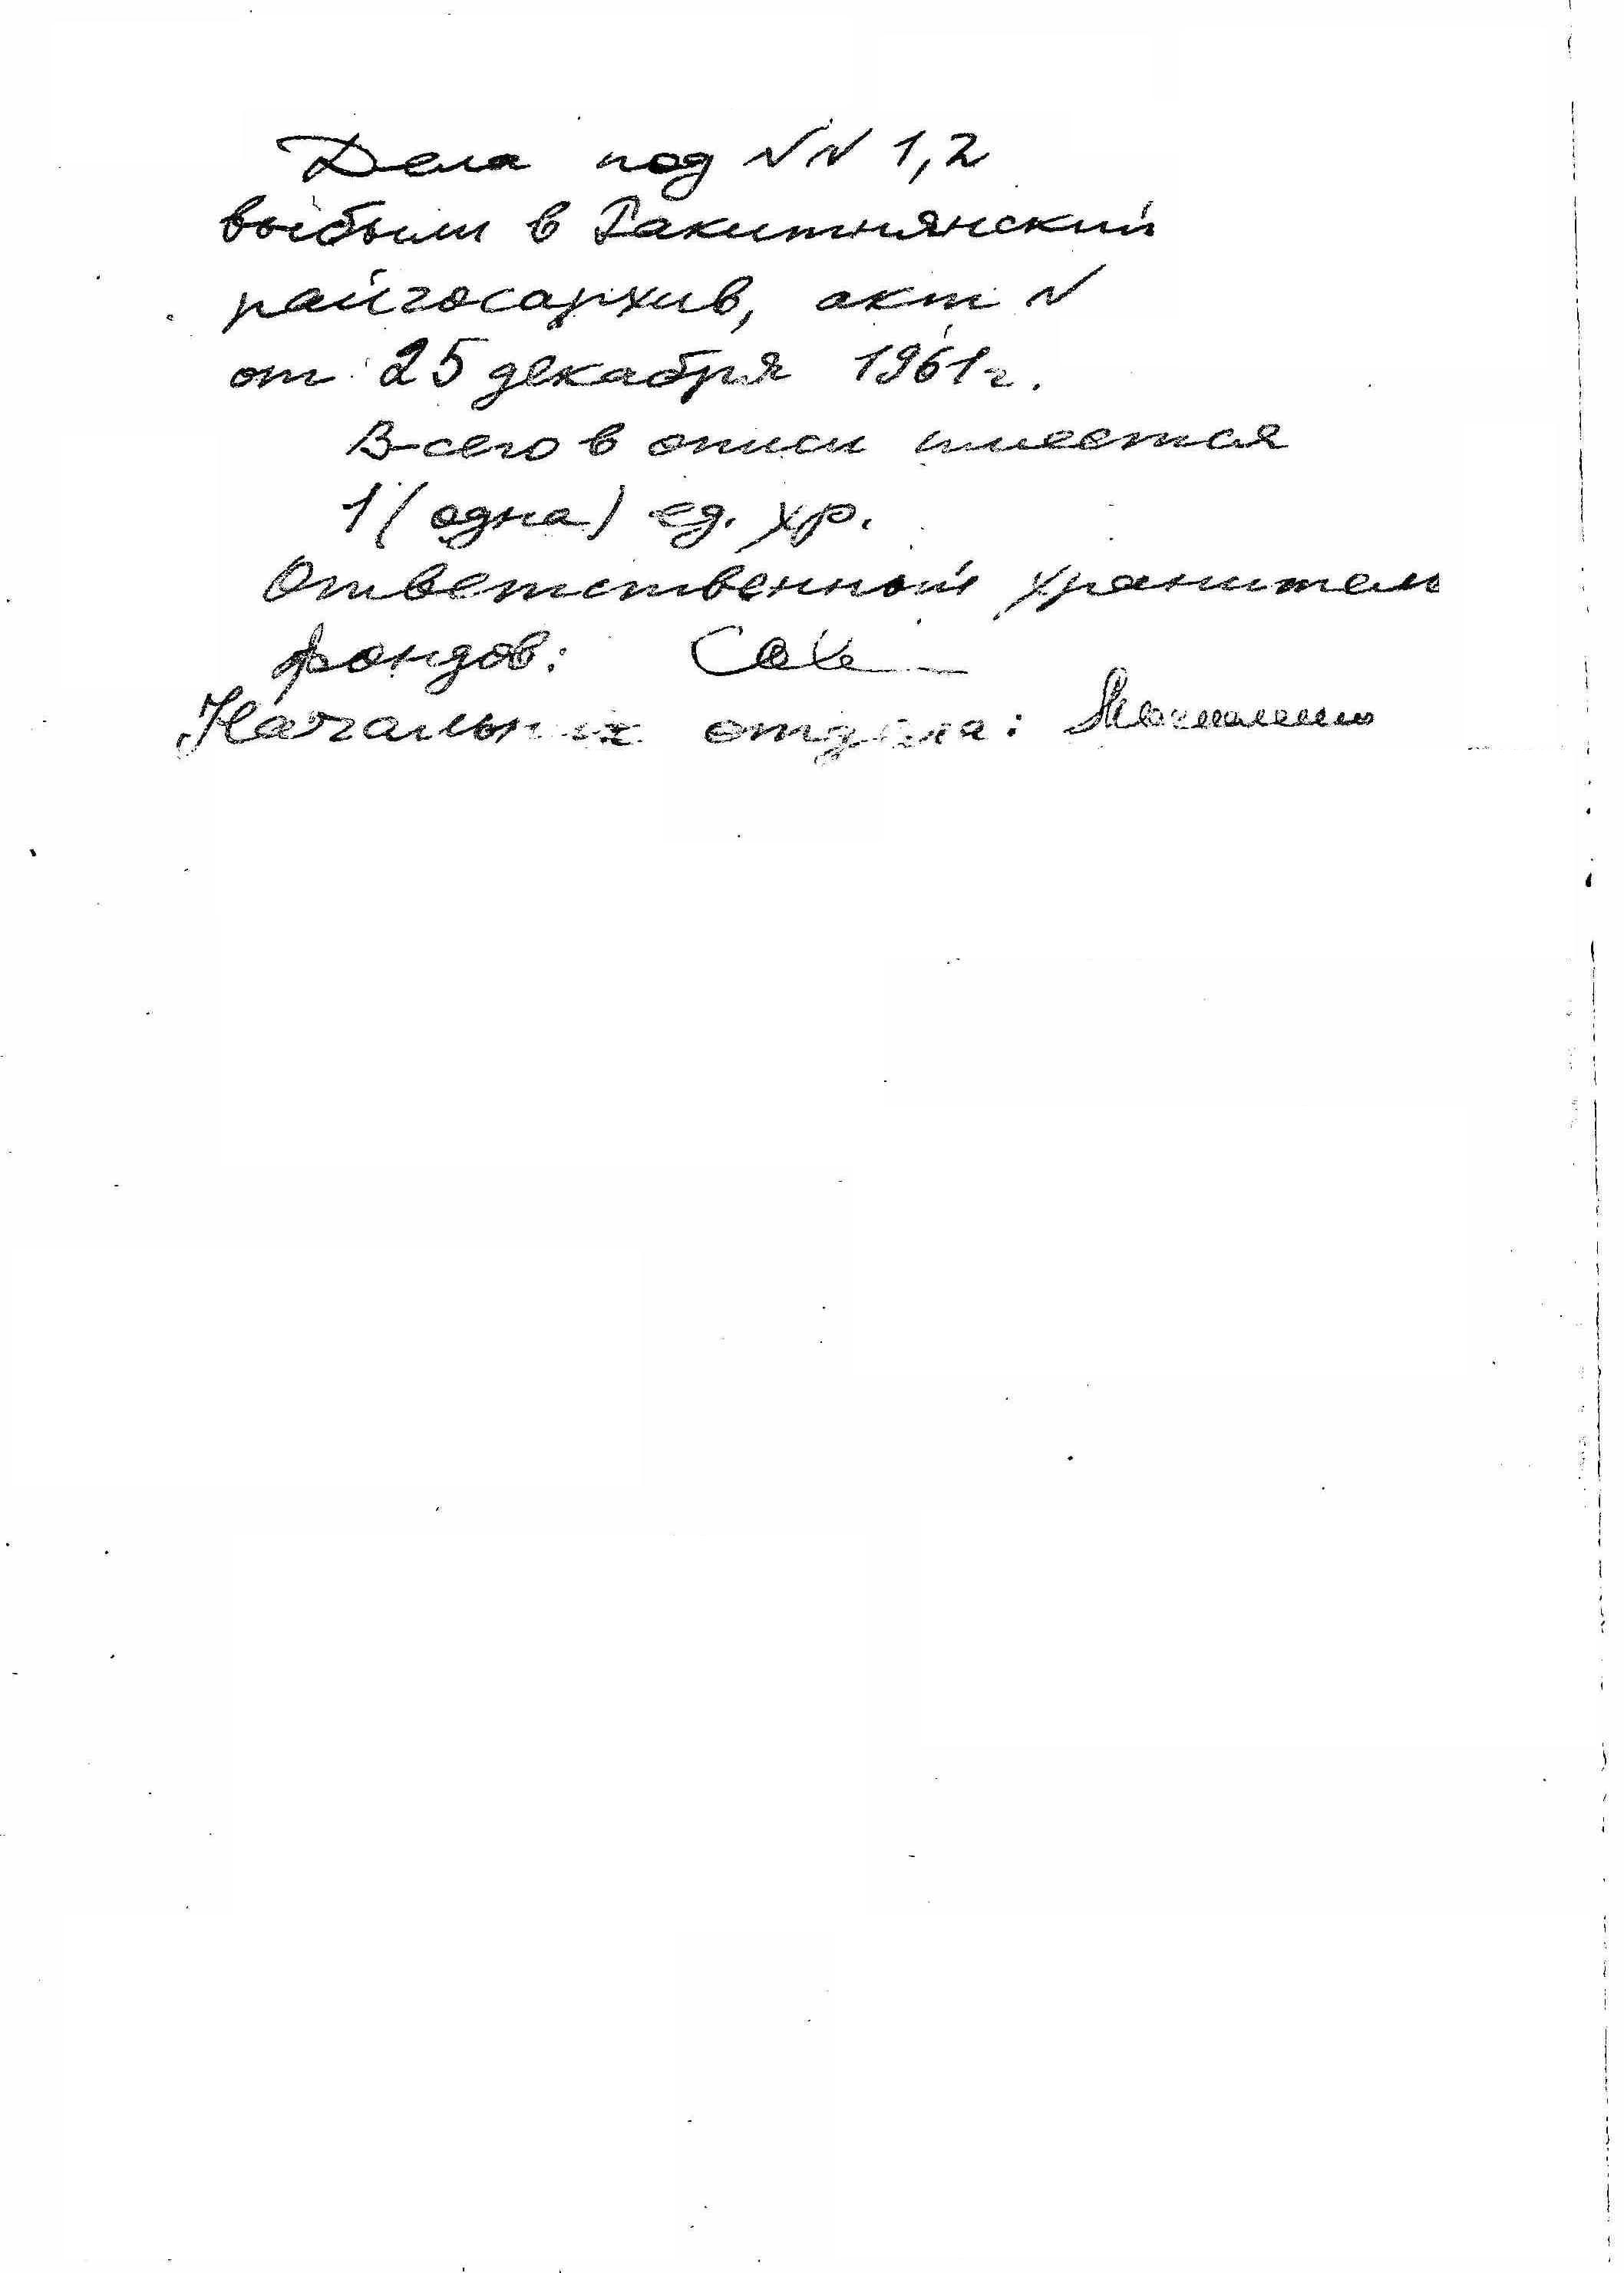 Дела под NN 1,2
выбыли в Ракитнянский
райгосархив, акт N
от 25 декабря 1961г.
Всего в описи имеется
1 (одна) ед. хр.
Ответственный хранитель
фондов:
Начальник отдела: